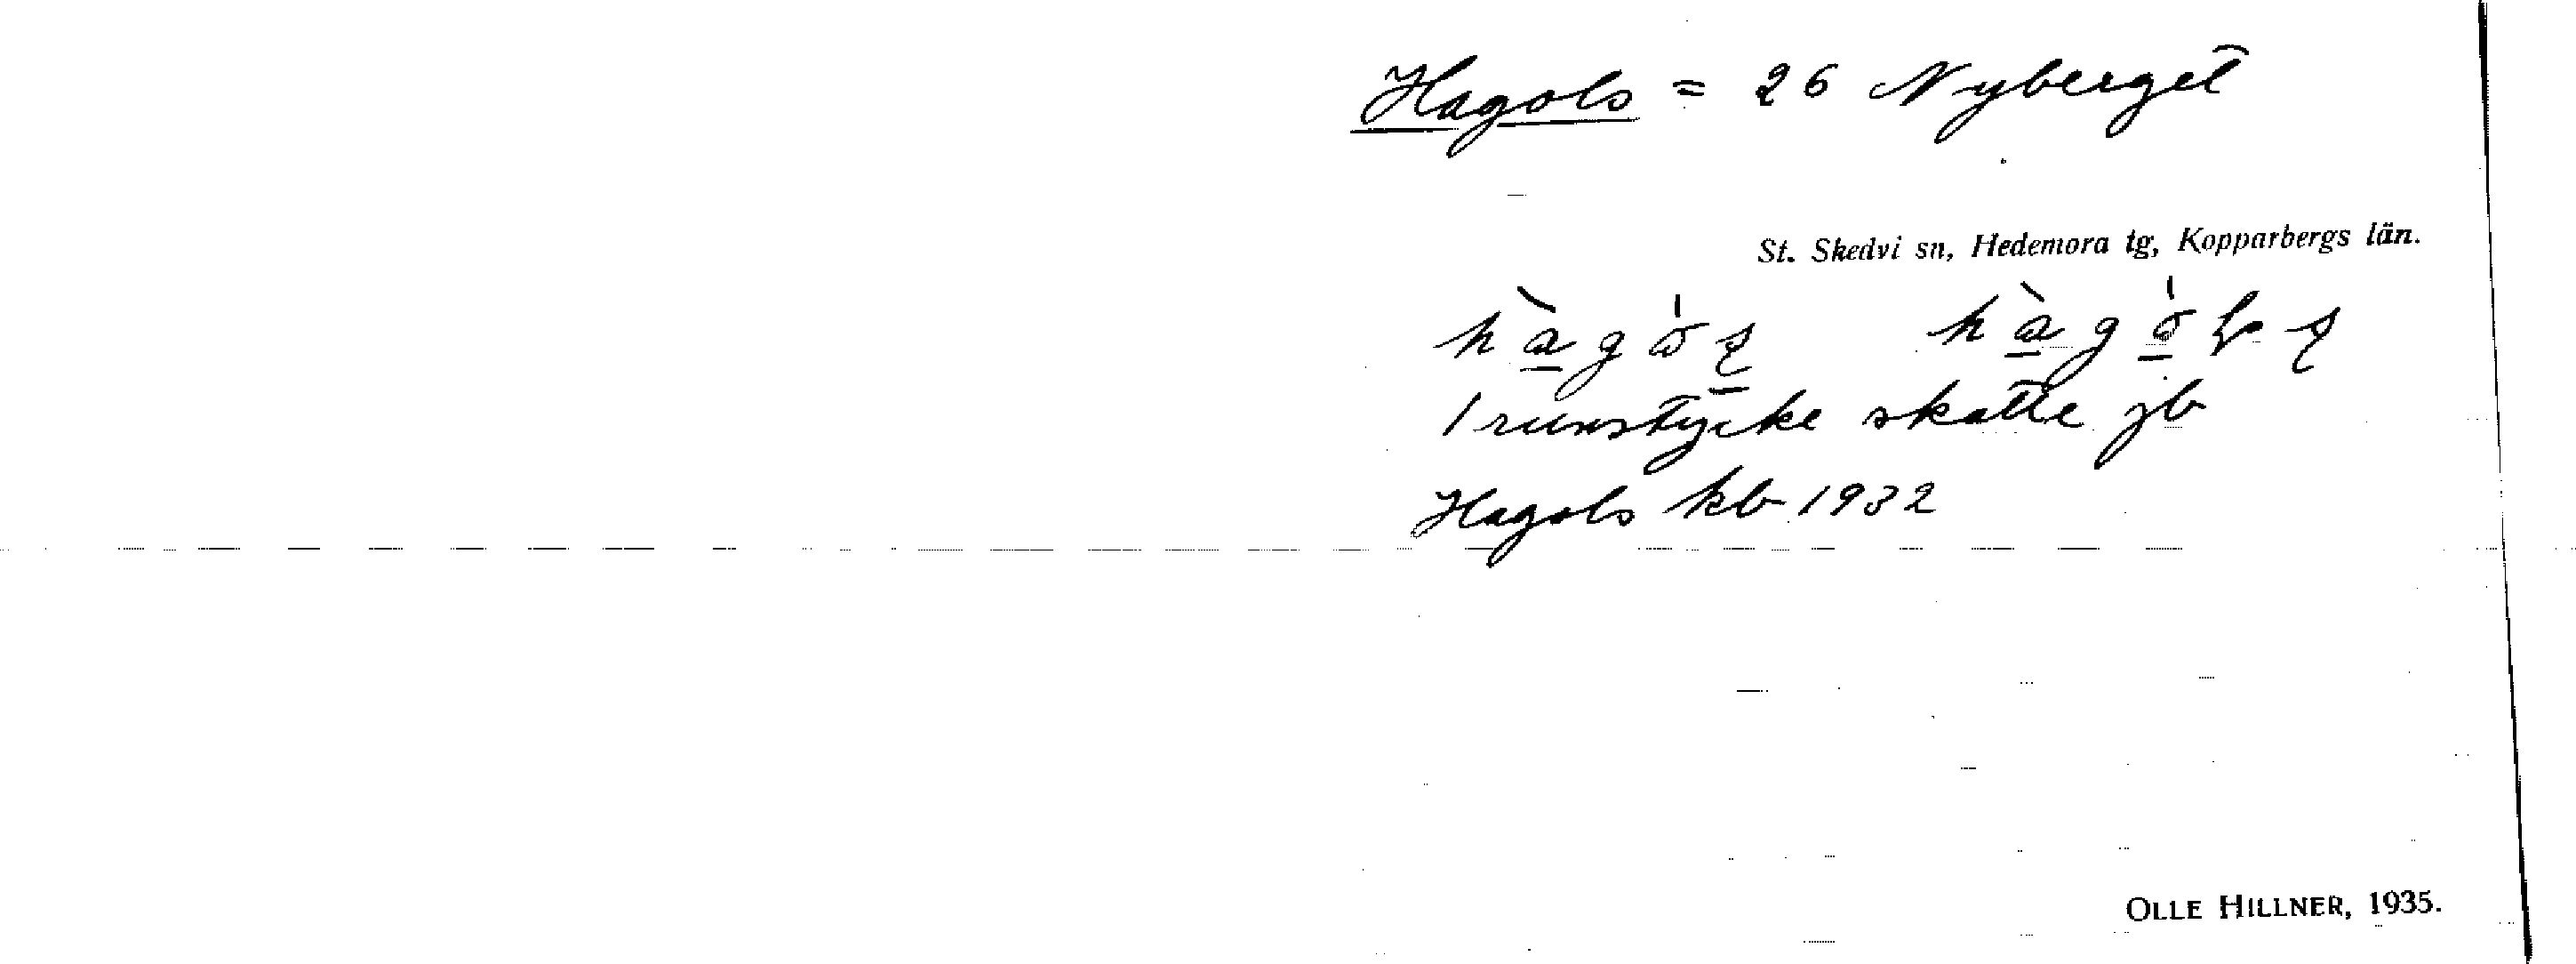 Hagols = 26 Nyberget
St. Skedvi sn, Hedemora tg, Kopparbergs län.
1 runstycke skatte jb
Hagols kb 1932
OLLE HILLNER, 1935.